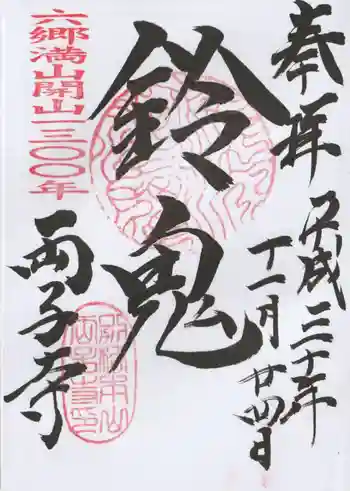 奉拝
平成三十年
十一月廿四日
鈴鬼
六郷満山開山一三〇〇年
両子寺